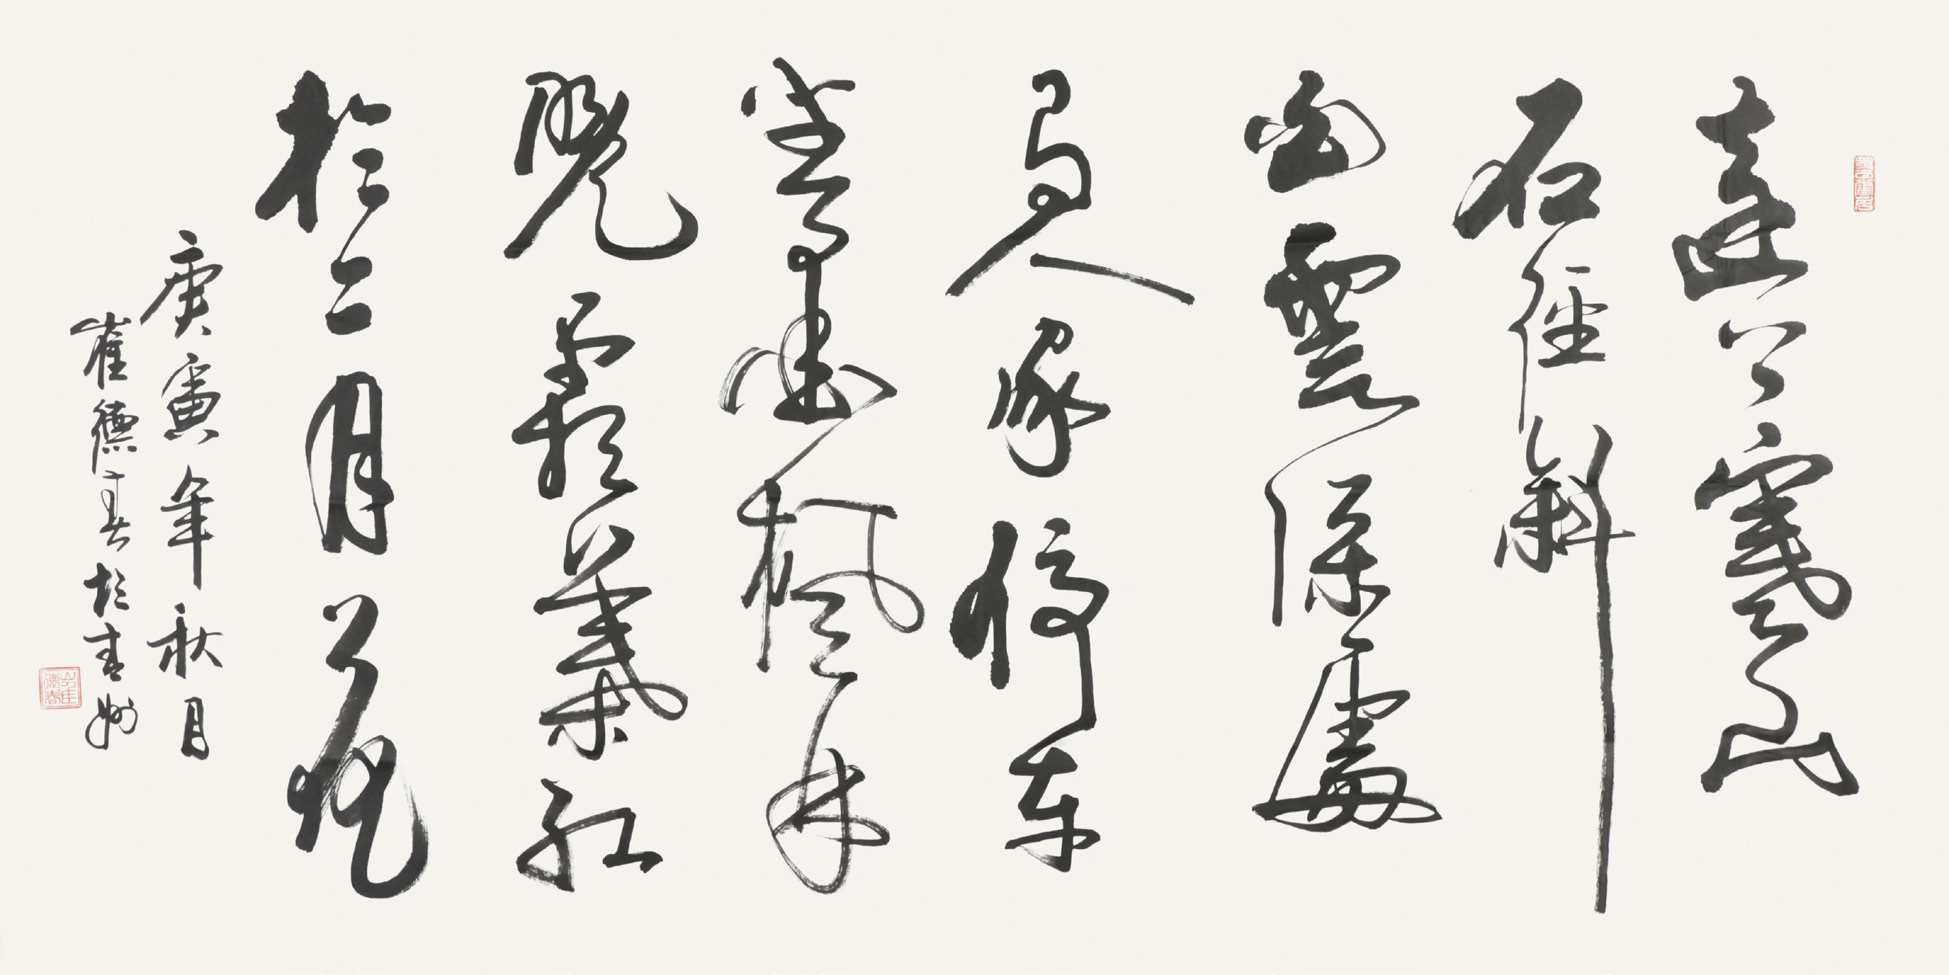 遠上寒山
石徑斜
白雲深處
有人家停車
坐愛楓林
晚霜葉紅
於二月花
庚寅年秋月
崔德春於青州
崔德春